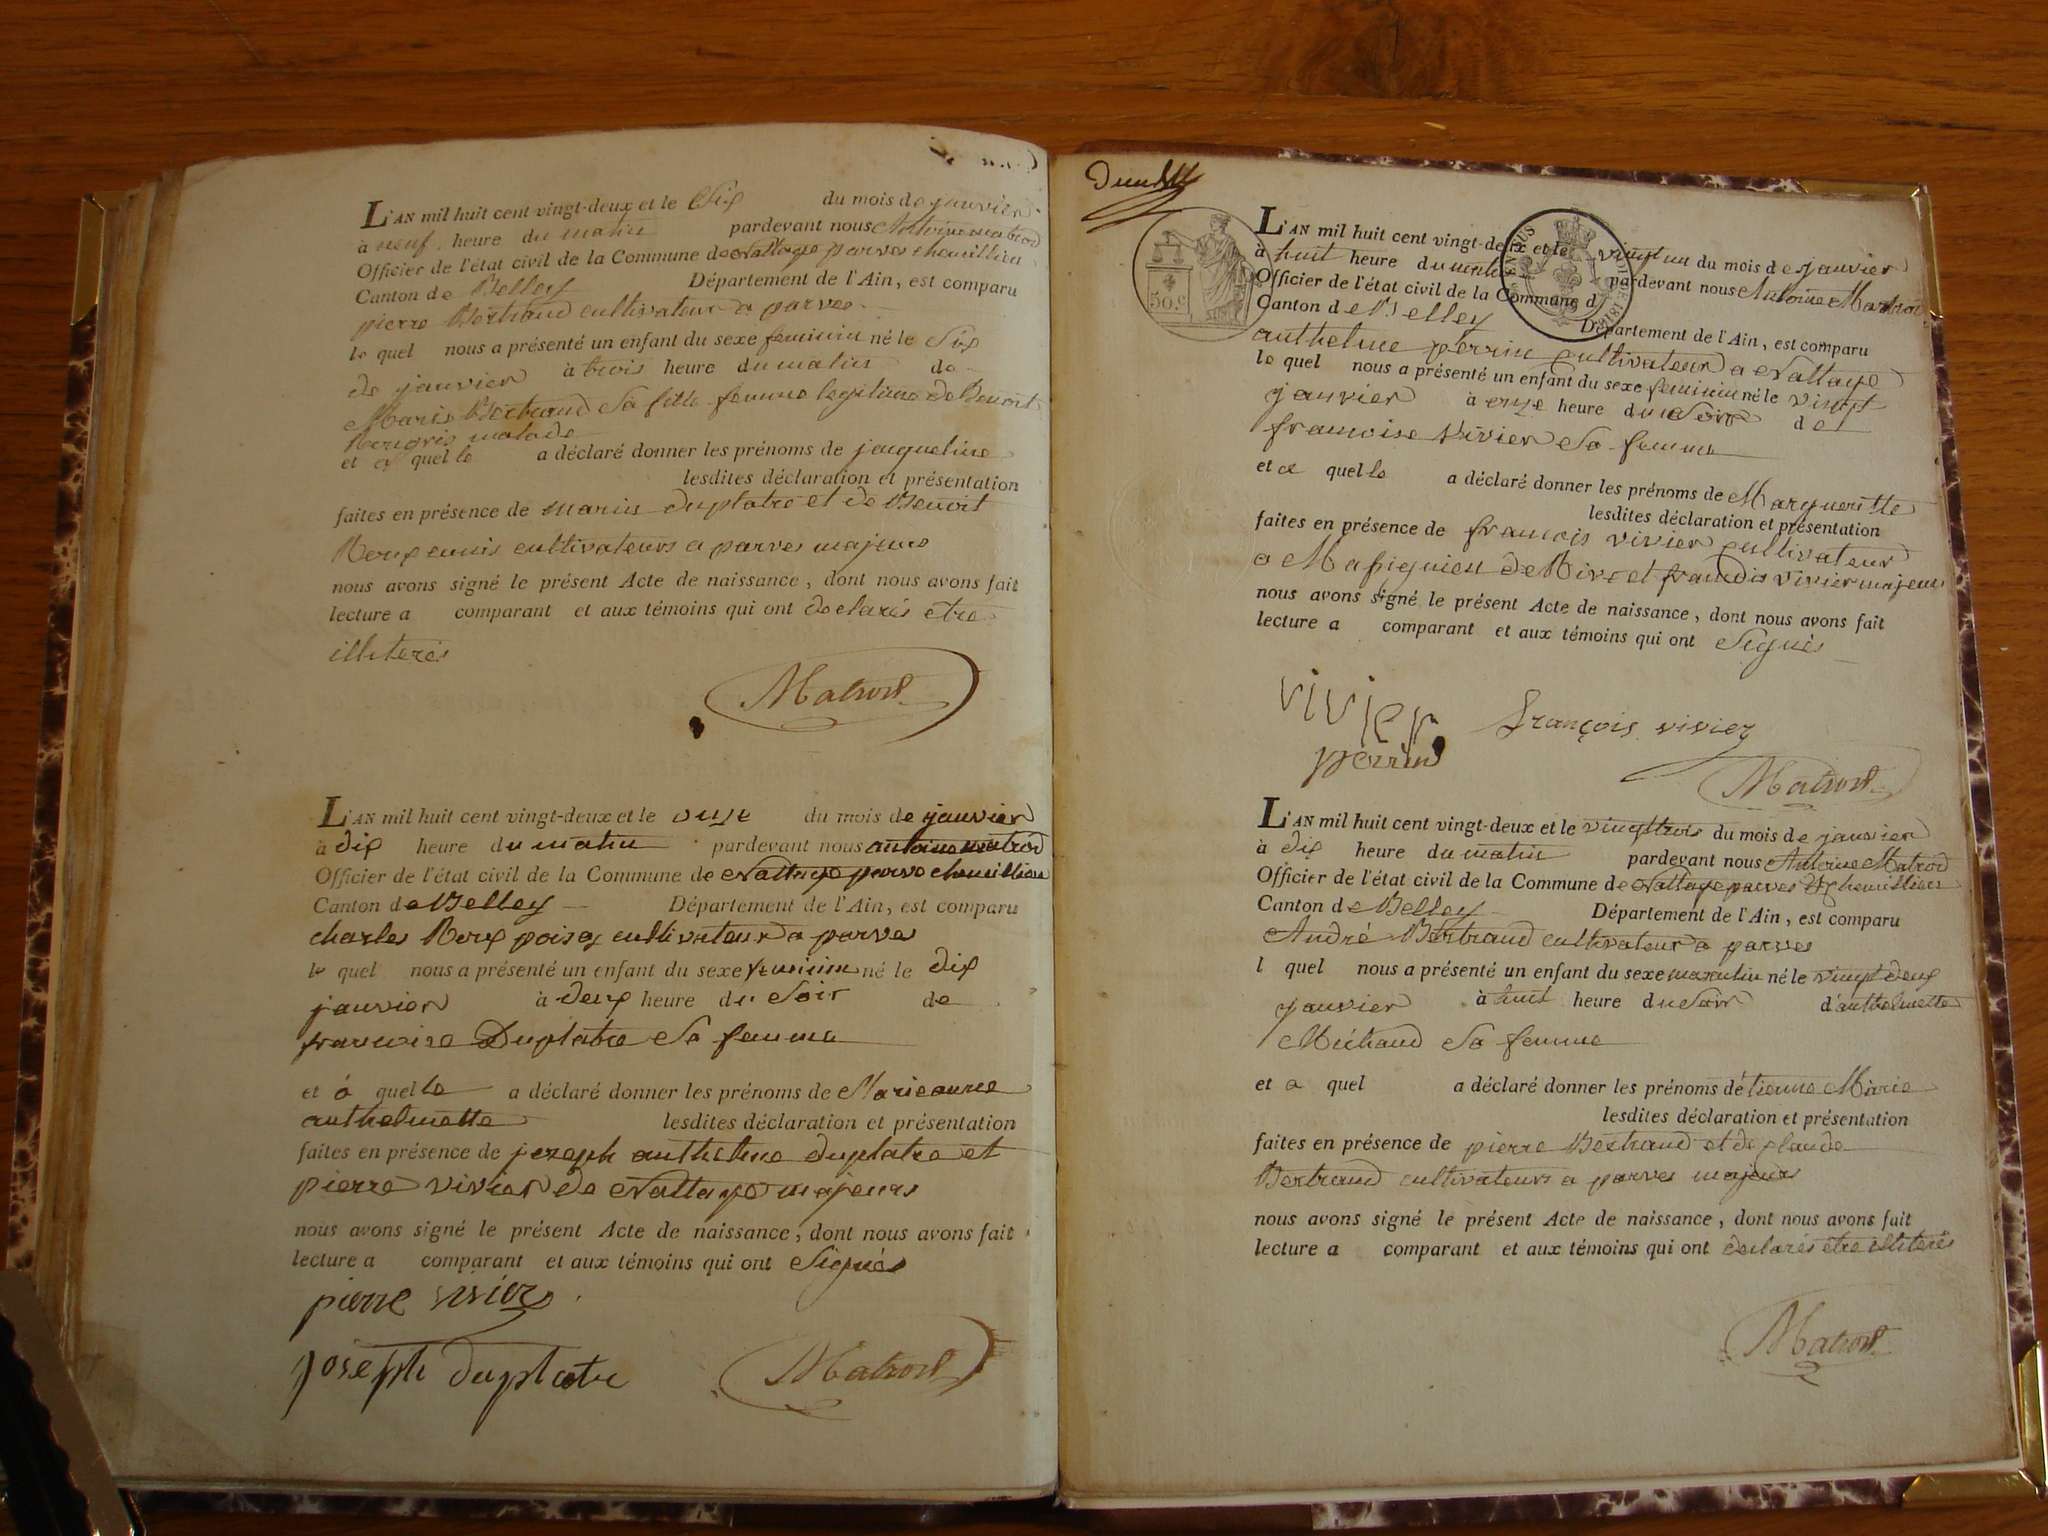 L'AN mil huit cent vingt-deux et le Six du mois de janvier
à neuf heure du matin pardevant nous Antoine matrod
Officier de l'état civil de la Commune de Nattage parves chemillieu
Canton de Belley Département de l'Ain, est comparu
pierre Bertrand cultivateur a parves
le quel nous a présenté un enfant du sexe feminin né le Six
de janvier à trois heure du matin de
Marie Bertrand Sa fille femme legitime de Benoit
malade
et a quel le a déclaré donner les prénoms de jaqueline
lesdites déclaration et présentation
faites en présence de marin duplatre et de Benoit
Roux cultivateurs a parves majeurs
nous avons signé le présent Acte de naissance, dont nous avons fait
lecture a comparant et aux témoins qui ont declarés etre
illiterés
Matrod
L'AN mil huit cent vingt-deux et le onze du mois de janvier
à dix heure du matin pardevant nous antoine matrod
Officier de l'état civil de la Commune de Nattage parve chemillieu
Canton de Belley Département de l'Ain, est comparu
charles Roux cultivateur a parves
le quel nous a présenté un enfant du sexe feminin né le dix
janvier à deux heure du Soir de
francoise Duplatre Sa femme
et a quel le a déclaré donner les prénoms de Marie anne
anthelmette lesdites déclaration et présentation
faites en présence de jozeph anthelme duplatre et
pierre vivier de Nattage majeurs
nous avons signé le présent Acte de naissance, dont nous avons fait
lecture a comparant et aux témoins qui ont Signés
pierre vivier
joseph duplatre Matrod
50.c
L'AN mil huit cent vingt-deux et le vingt un du mois de janvier
à huit heure du matin pardevant nous Antoine Matrod
Officier de l'état civil de la Commune d
Canton de Belley Département de l'Ain, est comparu
anthelme perrin cultivateur a Nattage
le quel nous a présenté un enfant du sexe feminin né le vingt
janvier à onze heure du Soir de
francoise Vivier Sa femme
et a quel le a déclaré donner les prénoms de Margueritte
lesdites déclaration et présentation
faites en présence de francois vivier cultivateur
a Massignieu de Rive et francois vivier majeurs
nous avons signé le présent Acte de naissance, dont nous avons fait
lecture a comparant et aux témoins qui ont Signés
vivier françois vivier
perrin
Matrod
L'AN mil huit cent vingt-deux et le vingttrois du mois de janvier
à dix heure du matin pardevant nous Antoine Matrod
Officier de l'état civil de la Commune de Nattage parves & chemillieu
Canton de Belley Département de l'Ain, est comparu
André Bertrand cultivateur a parves
l quel nous a présenté un enfant du sexe masculin né le vingt deux
janvier à huit heure du Soir d'anthelmette
Michaud Sa femme
et a quel a déclaré donner les prénoms détienne Marie
lesdites déclaration et présentation
faites en présence de pierre Bertrand et de claude
Bertrand cultivateurs a parves majeurs
nous avons signé le présent Acte de naissance, dont nous avons fait
lecture a comparant et aux témoins qui ont declarés etre illiterés
Matrod